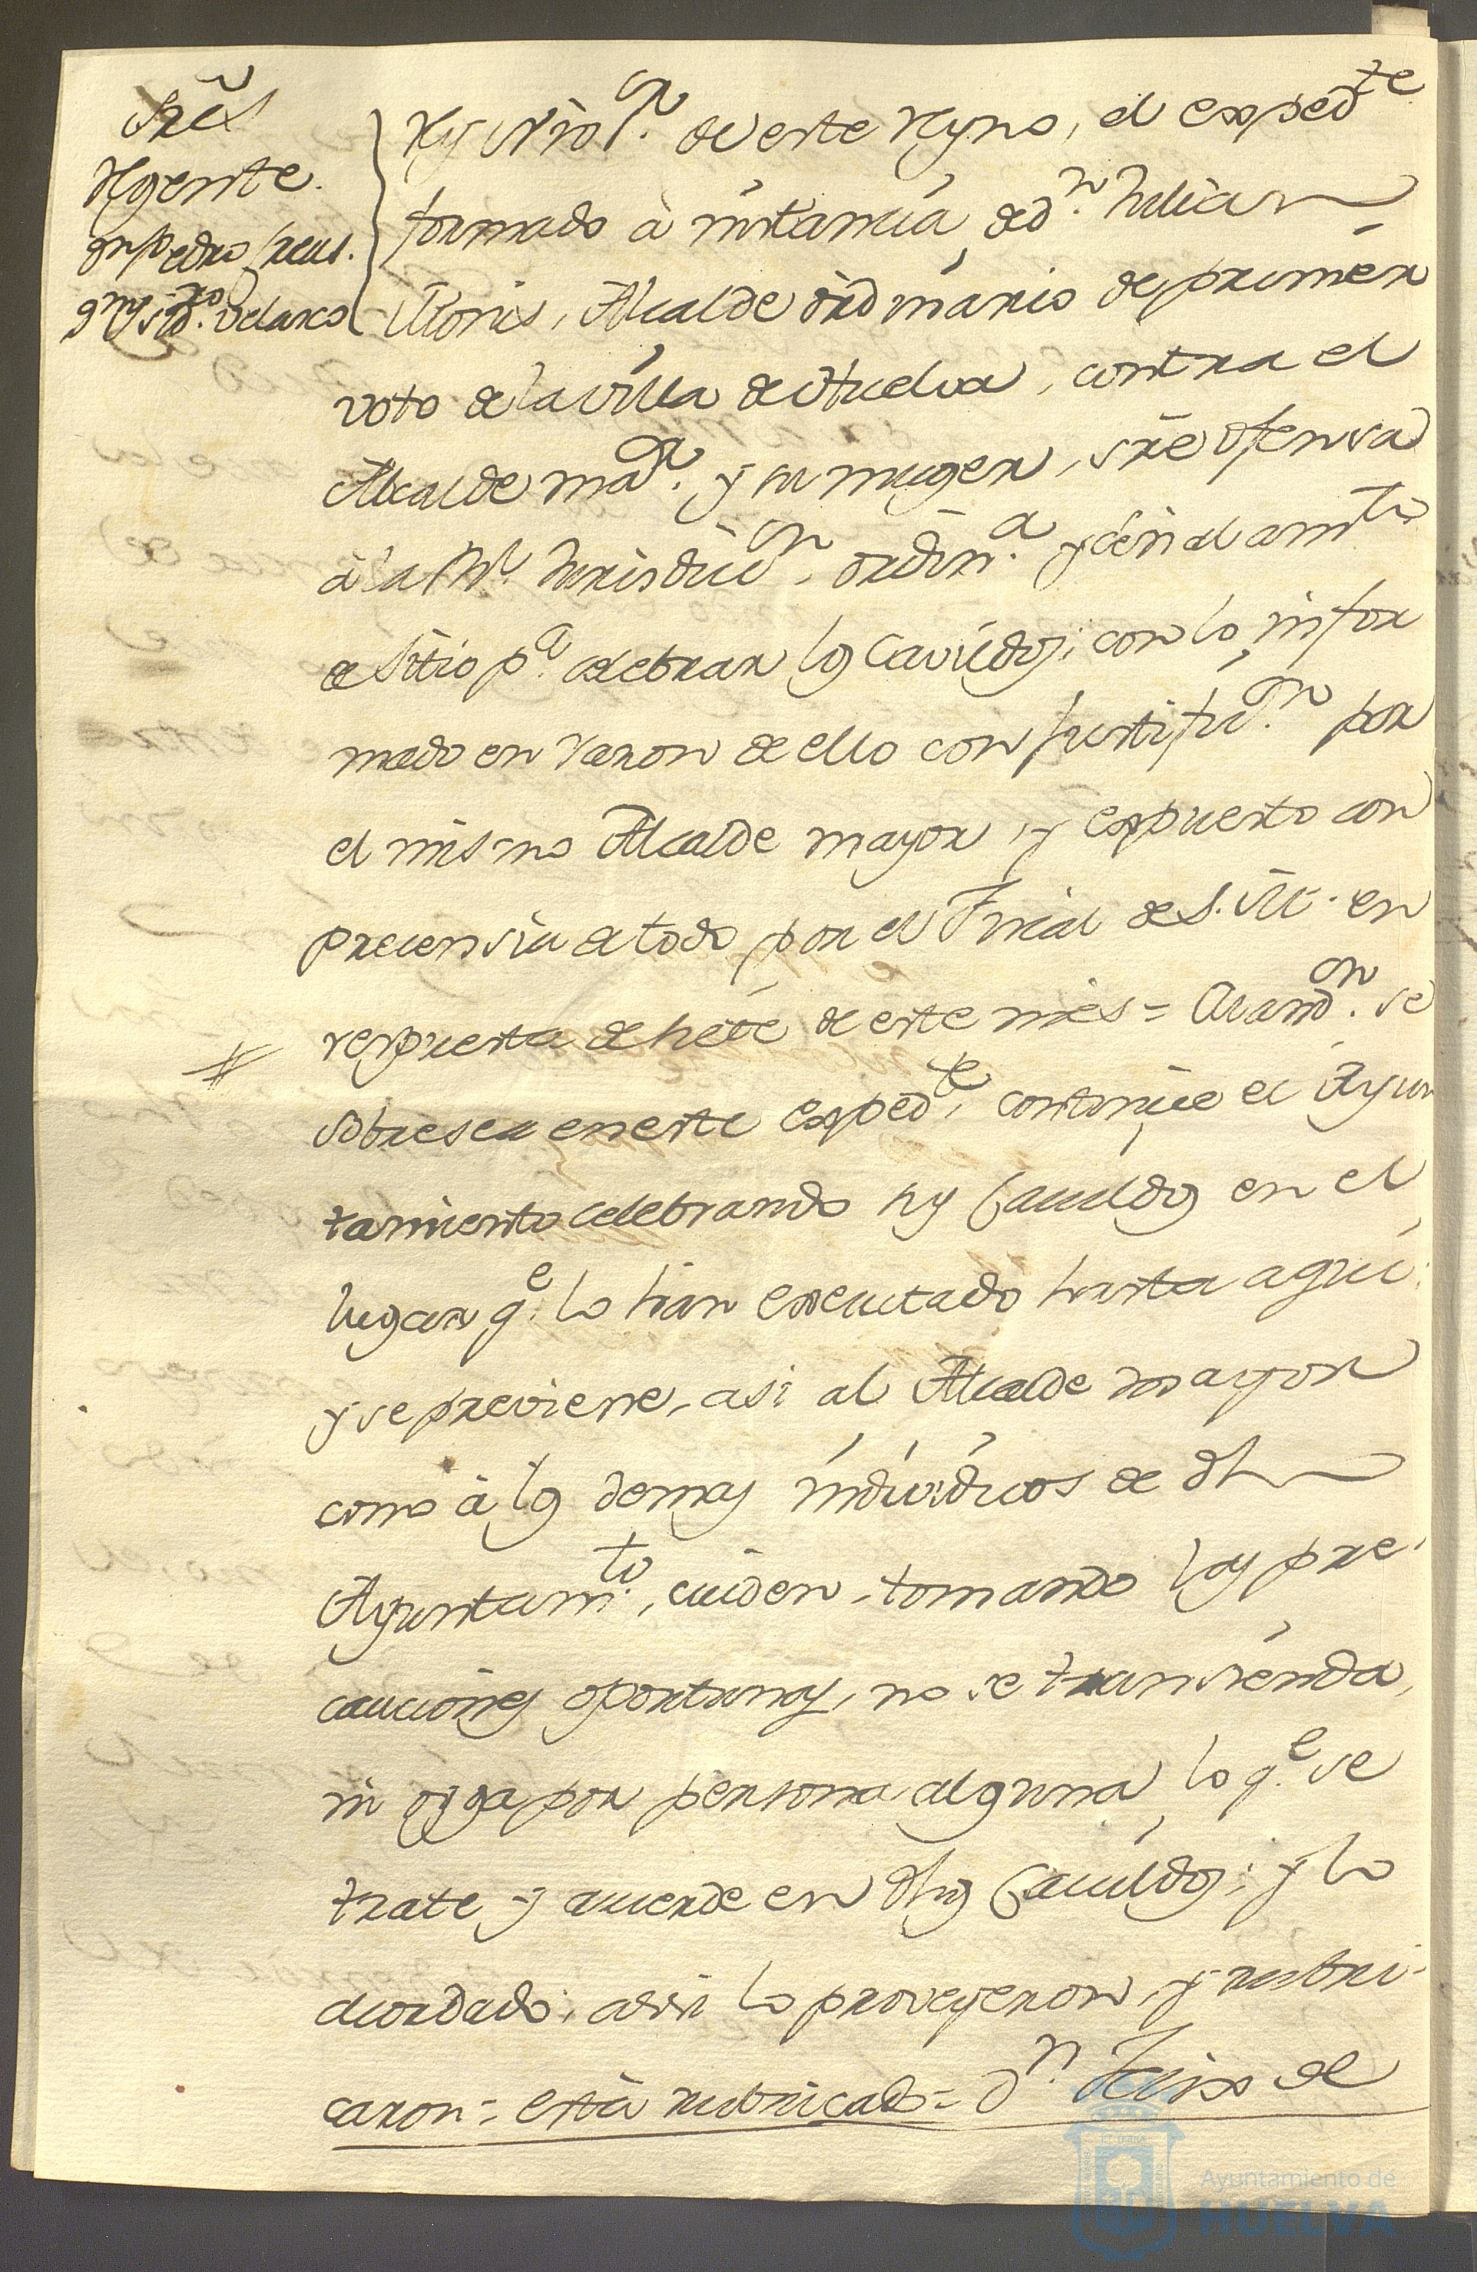 Sres
Regente.
Dn Pedro Creus.
Dn Isid.ro Velasco
de este Reyno, el expedte
formado à instancia de Dn. Julian
Monis, Alcalde ordinario de primer
voto de la villa de Huelva, contra el
Alcalde mar. y su muger, sre ofensa
à la Rl. Jurisdicn. ordina. y señalamto
de sitio pa. celebrar los Cavildos; con lo infor
mado en razon de ello con justificn. por
el mismo Alcalde mayor, y expuesto con
precensia de todo por el Fiscal de S.M. en
respuesta de siete de este mes = Mandn. se
sobresea en este expedte, continúe el Ayun
tamiento celebrando sus Cavildos en el
lugar qe. lo han executado hasta aqui:
y se previene, asi al Alcalde mayor
como à los demas individuos de dho
Ayuntamto., cuiden, tomando las pre
cauciones oportunas, no se transienda,
ni oyga por persona alguna, lo qe. se
trate y acuerde en dhos Cavildos; y lo
acordado, assi lo proveyeron, y rubri-
caron = està rubricado = Dn. de
Ayuntamiento de
HUELVA